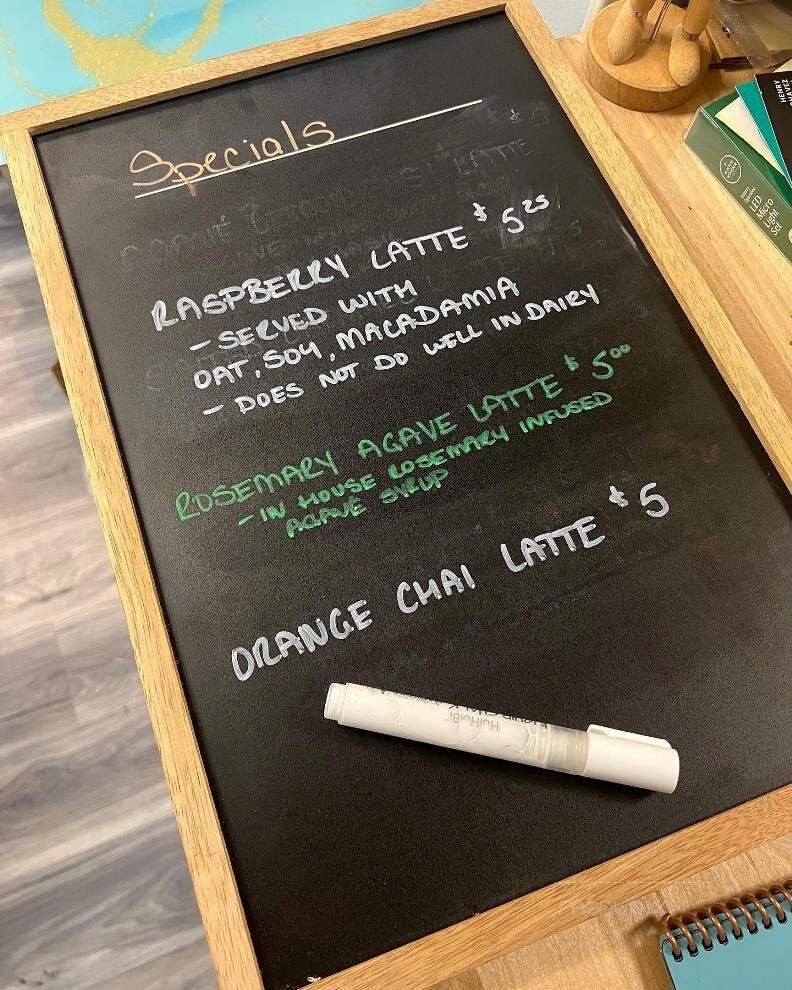 Specials
RASPBERRY LATTE $5.25
- SERVED WITH
OAT, SOY, MACADAMIA
- DOES NOT DO WELL IN DAIRY
ROSEMARY AGAVE LATTE $5.00
- IN HOUSE ROSEMARY INFUSED
AGAVE SYRUP
ORANGE CHAI LATTE $5
HuiHuiBi
LED
Micro
Light
Set
HENRY